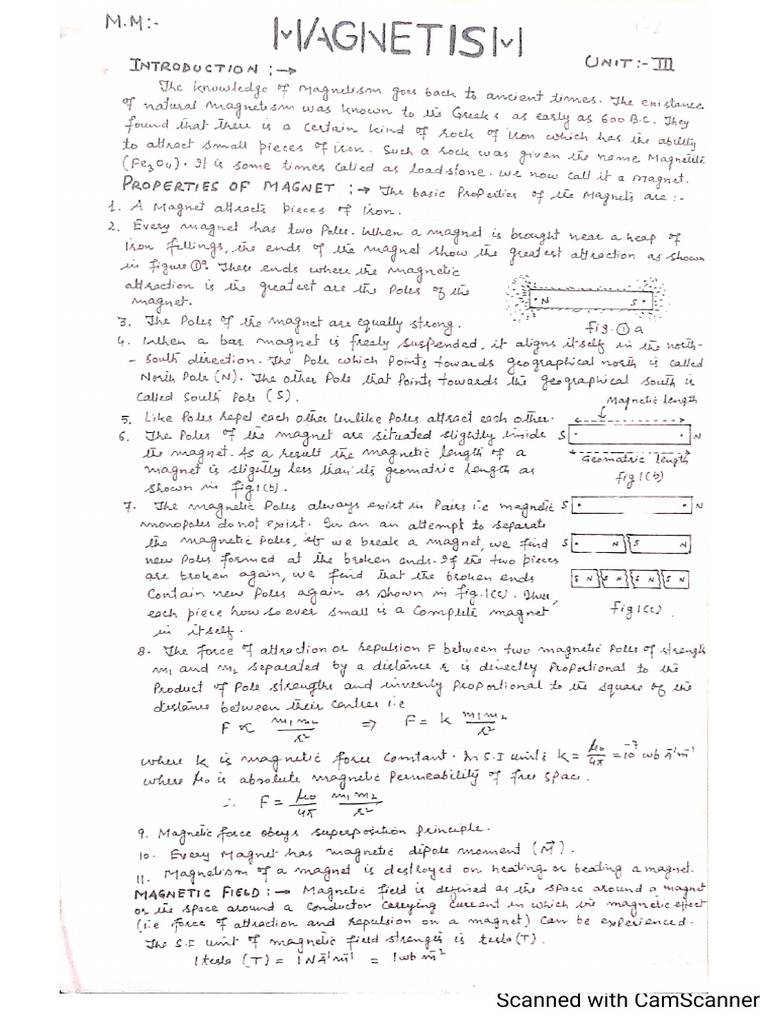 M.M:-
MAGNETISM
UNIT:- III
INTRODUCTION :→
The knowledge of Magnetism goes back to ancient times. The existance
of natural magnetism was known to the Greeks as early as 600 B.C. They
found that there is a certain kind of rock of iron which has the ability
to attract small pieces of iron. Such a rock was given the name Magnetite
(Fe3O4). It is some times called as loadstone. we now call it a magnet.
PROPERTIES OF MAGNET :→ The basic Properties of the Magnets are :-
1. A Magnet attracts pieces of Iron.
2. Every magnet has two Poles. When a magnet is brought near a heap of
iron fillings, the ends of the magnet show the greatest attraction as shown
in figure ①a. These ends where the magnetic
attraction is the greatest are the Poles of the
magnet.
N S
fig. ① a
3. The Poles of the magnet are equally strong.
4. When a bar magnet is freely suspended, it aligns itself in the north-
- south direction. The Pole which Points towards geographical north is called
North Pole (N). The other Pole that Points towards the geographical south is
called South Pole (S).
Magnetic length
5. Like Poles repel each other unlike Poles attract each other.
6. The Poles of the magnet are situated slightly inside
the magnet. As a result the magnetic length of a
magnet is slightly less than its geomatric length as
shown in fig 1(b).
S N
Geomatric length
fig 1(b)
7. The magnetic Poles always exist in Pairs i.e magnetic
monopoles do not exist. In an an attempt to separate
the magnetic Poles, if we break a magnet, we find
new Poles formed at the broken ends. If the two pieces
are broken again, we find that the broken ends
Contain new Poles again as shown in fig. 1(c). Thus,
each piece how so ever small is a Complete magnet
in itself.
S N
S N S N
S N S N S N S N
Fig 1(c)
8. The force of attraction or repulsion F between two magnetic Poles of strength
m1 and m2 separated by a distance r is directly Proportional to the
Product of Pole strengths and inversly Proportional to the square of the
distance between their centres i.e
F ∝ m1m2/r² ⇒ F = k m1m2/r²
where k is magnetic force constant. In S.I units k = μ0/4π = 10⁻⁷ wb A⁻¹m⁻¹
where μ0 is absolute magnetic Permeability of free space.
∴ F = μ0/4π m1 m2/r²
9. Magnetic force obeys superposition Principle.
10. Every Magnet has magnetic dipole moment (M⃗).
11. Magnetism of a magnet is destroyed on heating or beating a magnet.
MAGNETIC FIELD :→ Magnetic field is defined as the space around a magnet
or the space around a conductor carrying current in which the magnetic effect
(i.e force of attraction and repulsion on a magnet) can be experienced.
The S.I unit of magnetic field strength is tesla (T).
1 tesla (T) = 1NA⁻¹m⁻¹ = 1wb m⁻²
Scanned with CamScanner